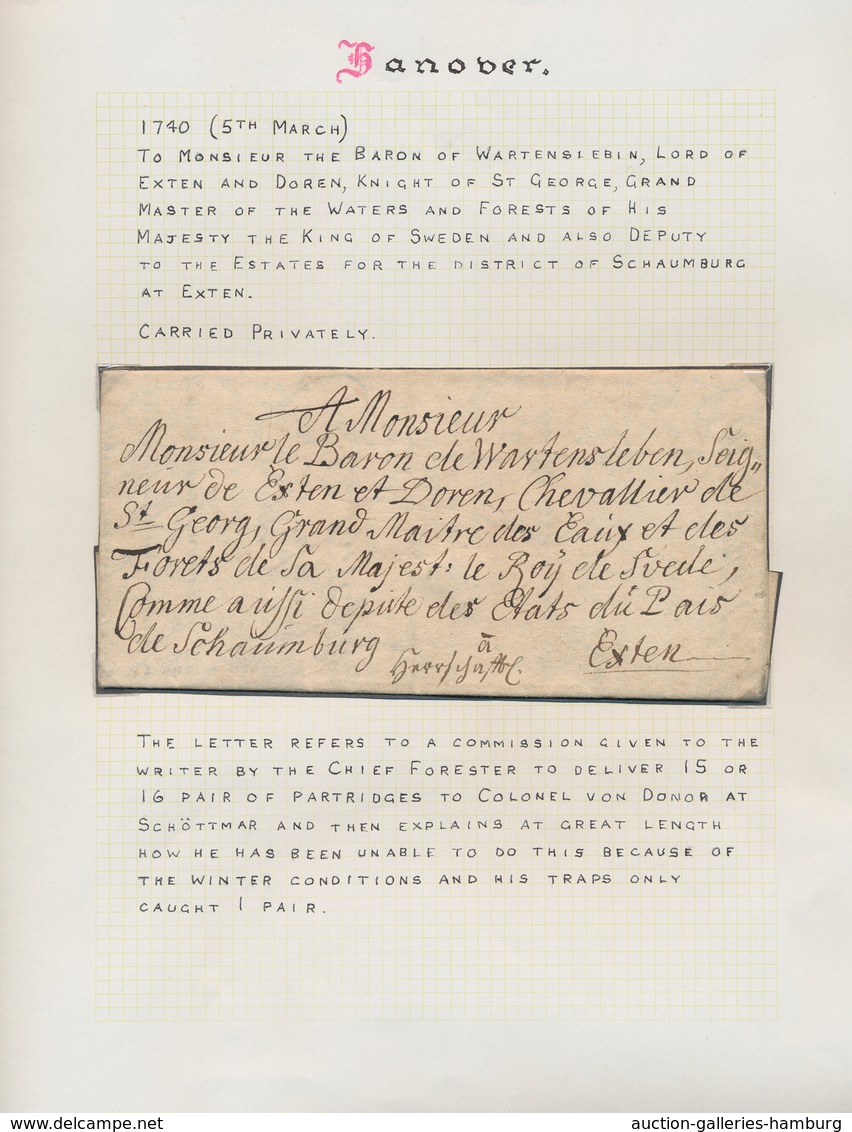 Hanover.
1740 (5TH MARCH)
TO MONSIEUR THE BARON OF WARTENSLEBIN, LORD OF
EXTEN AND DOREN, KNIGHT OF ST GEORGE, GRAND
MASTER OF THE WATERS AND FORESTS OF HIS
MAJESTY THE KING OF SWEDEN AND ALSO DEPUTY
TO THE ESTATES FOR THE DISTRICT OF SCHAUMBURG
AT EXTEN.
CARRIED PRIVATELY.
A Monsieur
Monsieur le Baron de Wartensleben, Seig„
neur de Exten et Doren, Chevallier de
St Georg, Grand Maitre des Eaux et des
Forets de Sa Majest: le Roÿ de Svede,
Comme aussi depute des Etats du Pais
de Schaumburg
à
Herrschaftl.
Exten
THE LETTER REFERS TO A COMMISSION GIVEN TO THE
WRITER BY THE CHIEF FORESTER TO DELIVER 15 OR
16 PAIR OF PARTRIDGES TO COLONEL VON DONOR AT
SCHÖTTMAR AND THEN EXPLAINS AT GREAT LENGTH
HOW HE HAS BEEN UNABLE TO DO THIS BECAUSE OF
THE WINTER CONDITIONS AND HIS TRAPS ONLY
CAUGHT 1 PAIR.
www.delcampe.net
auction-galleries-hamburg